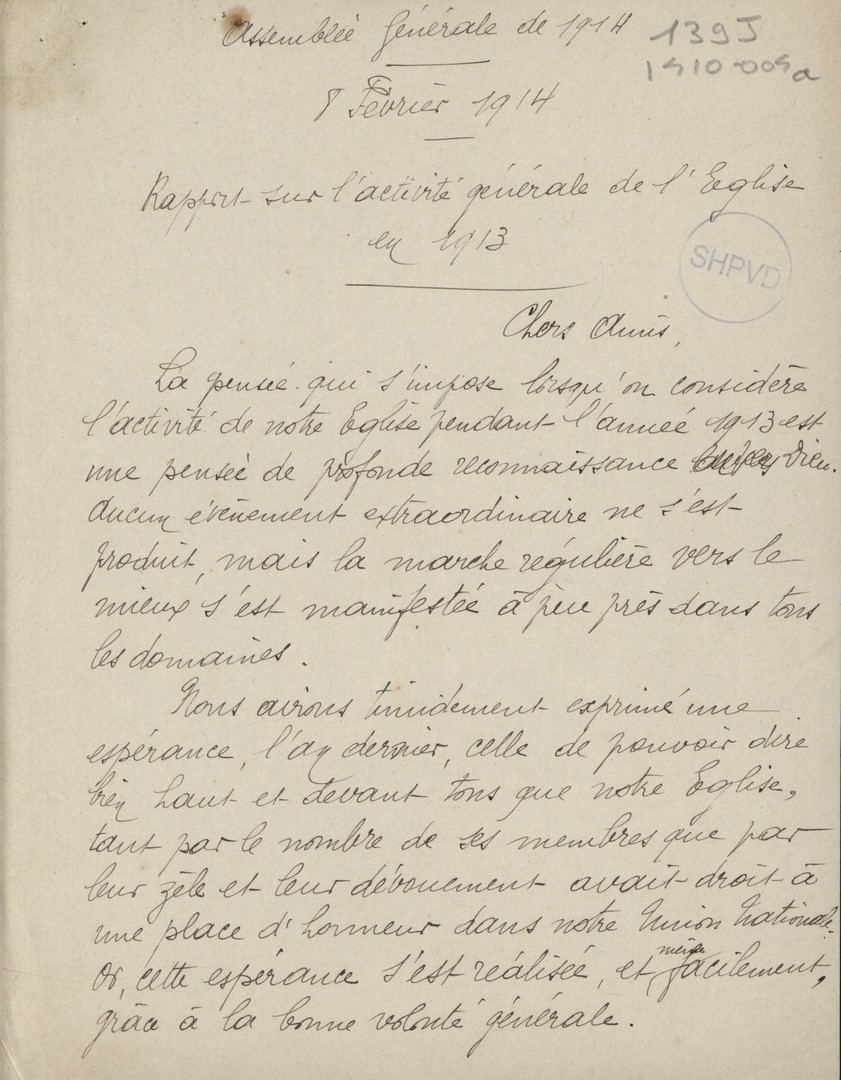 Assemblée Générale de 1914
139J
1S10-004a
8 Février 1914
Rapport sur l'activité générale de l'Eglise
en 1913
SHPVD
Chers Amis,
La pensée qui s'impose lorsqu'on considère
l'activité de notre Eglise pendant l'année 1913 est
une pensée de profonde reconnaissance envers Dieu.
Aucun évènement extraordinaire ne s'est
produit, mais la marche régulière vers le
mieux s'est manifestée à peu près dans tous
les domaines.
Nous avions timidement exprimé une
espérance, l'an dernier, celle de pouvoir dire
bien haut et devant tous que notre Eglise,
tant par le nombre de ses membres que par
leur zèle et leur dévouement avait droit à
une place d'honneur dans notre Union Nationale.
Or, cette espérance s'est réalisée, et même facilement,
grâce à la bonne volonté générale.